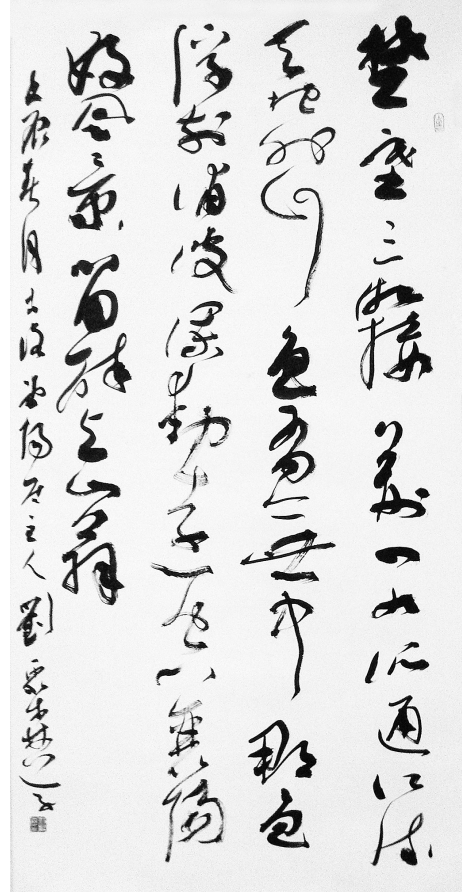 楚塞三湘接荆门九派通江流
天地外山色有無中郡邑
浮前浦波瀾動遠空襄陽
好風景留醉与山翁
春月陽居主人劉